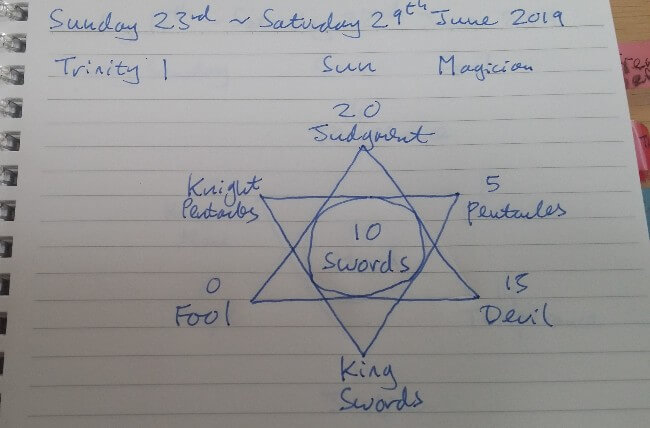 Sunday 23rd ~ Saturday 29th June 2019
Trinity 1 Sun Magician
20
Judgment
Knight
Pentacles
5
Pentacles
10
Swords
0
Fool
15
Devil
King
Swords